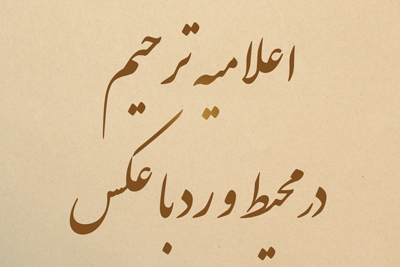 اعلامیه ترحیم
در محیط ورد با عکس